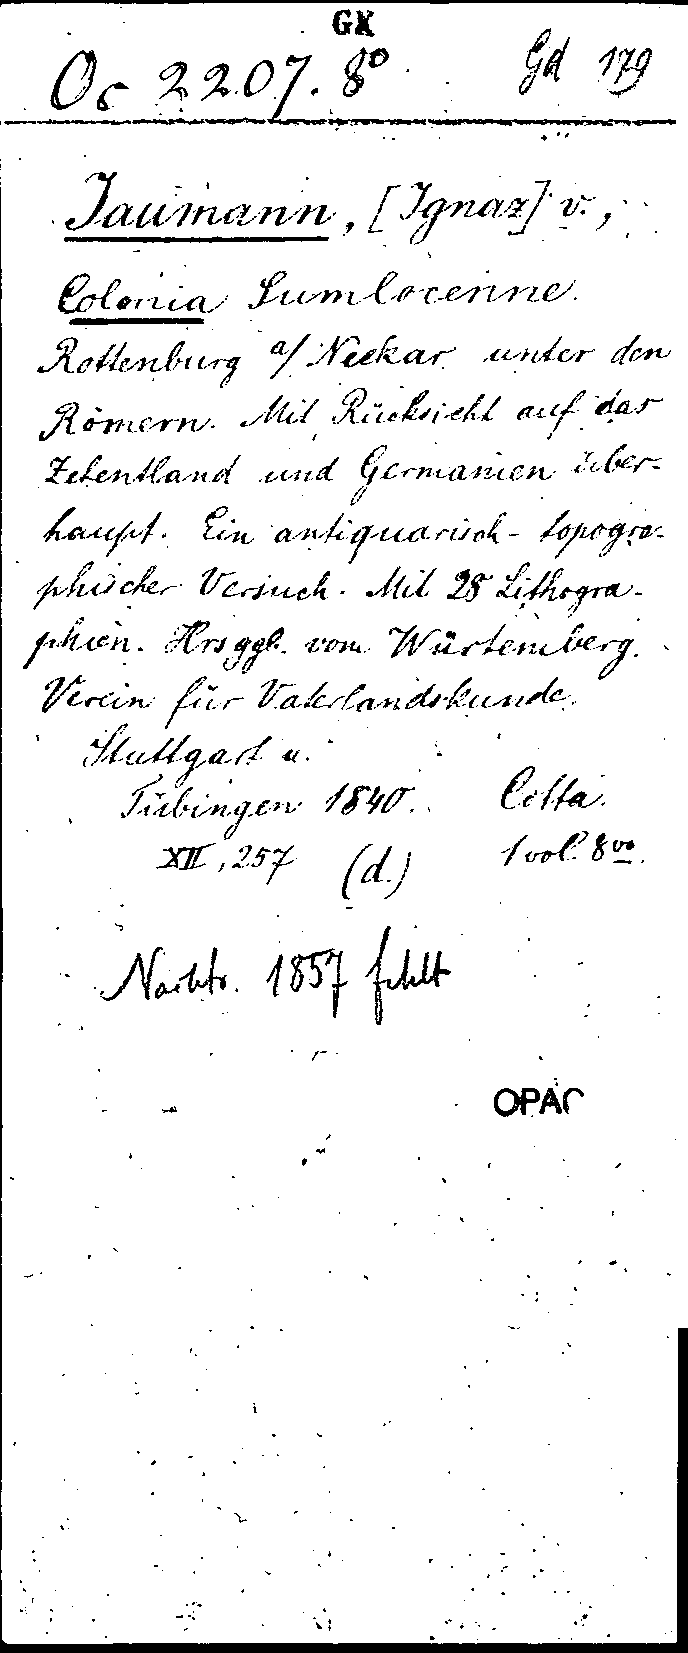 GK
Oc 2207. 8° Gd 179
Jaumann, [Ignaz] v.,
Colonia Sumlocenne.
Rottenburg a/ Neckar unter den
Römern. Mit Rücksicht auf das
Zehentland und Germanien über-
haupt. Ein antiquarisch-topogra-
phischer Versuch. Mit 28 Lithogra-
phien. Hrsggb. vom Würtemberg.
Verein für Vaterlandskunde.
Stuttgart u.
Tübingen 1840. Cotta.
XII, 257 (d.) 1 vol. 8vo.
Nachtr. 1857 fehlt
OPAC